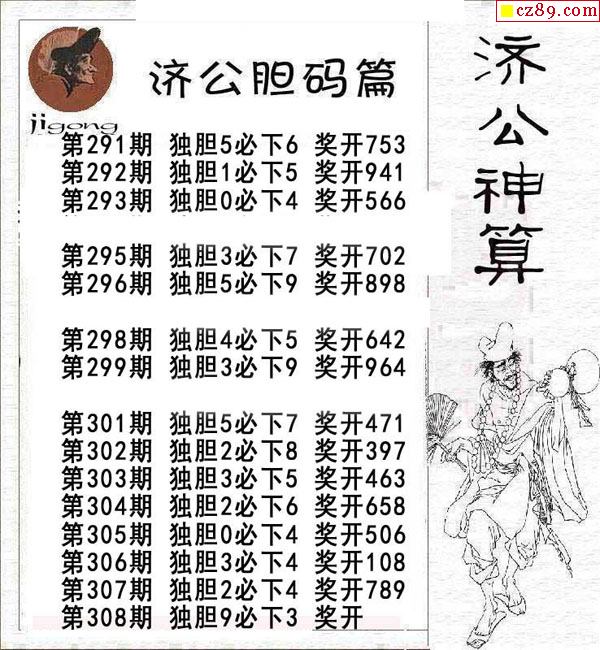 cz89.com
济公胆码篇
jigong
第291期 独胆5必下6 奖开753
第292期 独胆1必下5 奖开941
第293期 独胆0必下4 奖开566
第295期 独胆3必下7 奖开702
第296期 独胆5必下9 奖开898
第298期 独胆4必下5 奖开642
第299期 独胆3必下9 奖开964
第301期 独胆5必下7 奖开471
第302期 独胆2必下8 奖开397
第303期 独胆3必下5 奖开463
第304期 独胆2必下6 奖开658
第305期 独胆0必下4 奖开506
第306期 独胆3必下4 奖开108
第307期 独胆2必下4 奖开789
第308期 独胆9必下3 奖开
济公神算